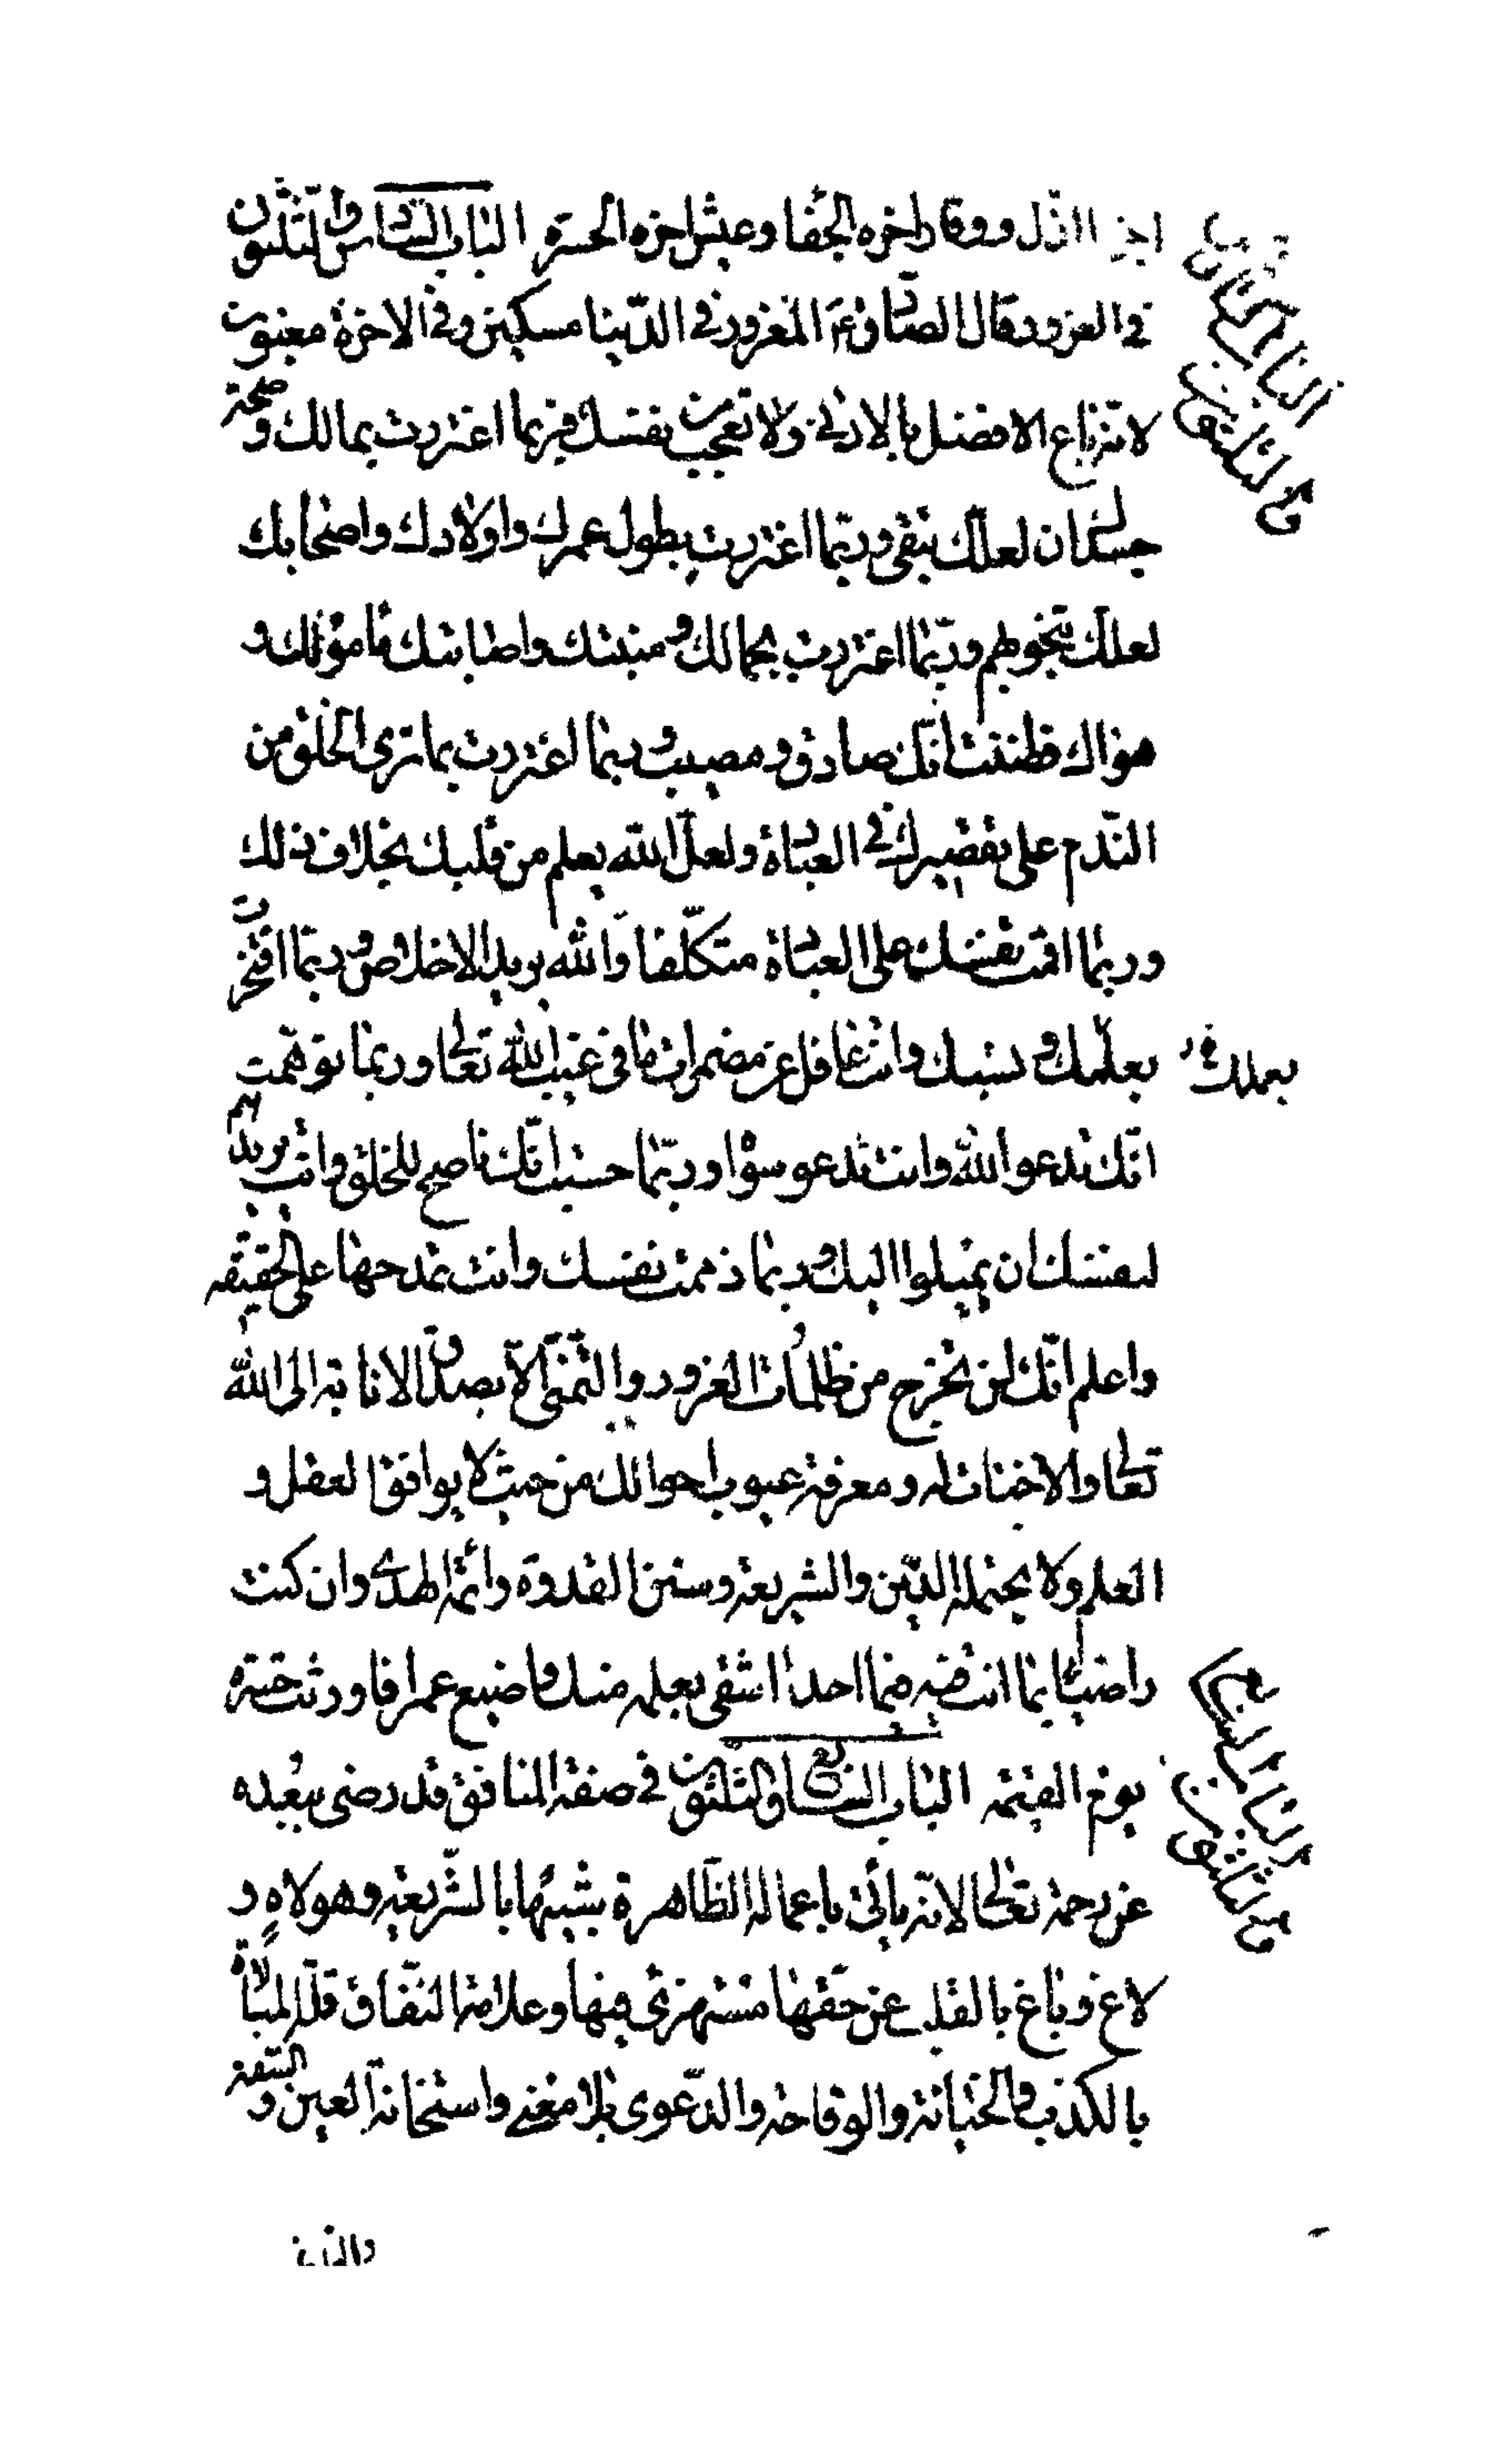 اخره الذل ووقار اخره الجفا وعيش اخره الحسرة الباب السادس والثلثون
في الغرور قال الصادق ع المغرور في الدنيا مسكين وفي الاخرة مغبون
لانه باع الافضل بالادنى ولا تعجب من نفسك فربما اغتررت بمالك وصحة
جسدك ان لعلك تبقى وربما اغتررت بطول عمرك واولادك واصحابك
لعلك تنجو بهم وربما اغتررت بجمالك ومنيتك واصابتك مامولك و
هواك فظننت انك صادق ومصيب وربما اغتررت بما ترى الخلق من
الندم على تقصيرك في العبادة ولعل الله يعلم من قلبك بخلاف ذلك
وربما اقمت نفسك على العبادة متكلفا والله يريد الاخلاص وربما افتخرت
بعلمك ونسبك وانت غافل عن مضمرات ما في غيب الله تعالى وربما توهمت
بعملك
انك تدعو الله وانت تدعو سواه وربما حسبت انك ناصح للخلق وانت تريدهم
لنفسك ان يميلوا اليك وربما ذممت نفسك وانت تمدحها على الحقيقه
واعلم انك لن تخرج من ظلمات الغرور والتمني الا بصدق الانابة الى الله
تعالى والاخبات له ومعرفة عيوب احوالك من حيث لا يوافق العقل و
العلم ولا يحتمله الدين والشريعة وسنن القدوة وائمة الهدى وان كنت
راضيا بما انت فيه فما احد اشقى بعلمه منك واضيع عمرا فاورثت حسرة
يوم القيمة الباب السابع والثلثون في صفة المنافق قد رضي ببعده
عن رحمة تعالى لانه ياتي باعماله الظاهرة شبيها بالشريعة وهو لاه و
لاغ وباغ بالقلب عن حقها مستهزئ فيها وعلامة النفاق قلة المبالاة
بالكذب والخيانة والوقاحة والدعوى بلا معنى واستخانة العين والسفه
الباب
والثلثون
الباب السابع
والثلثون